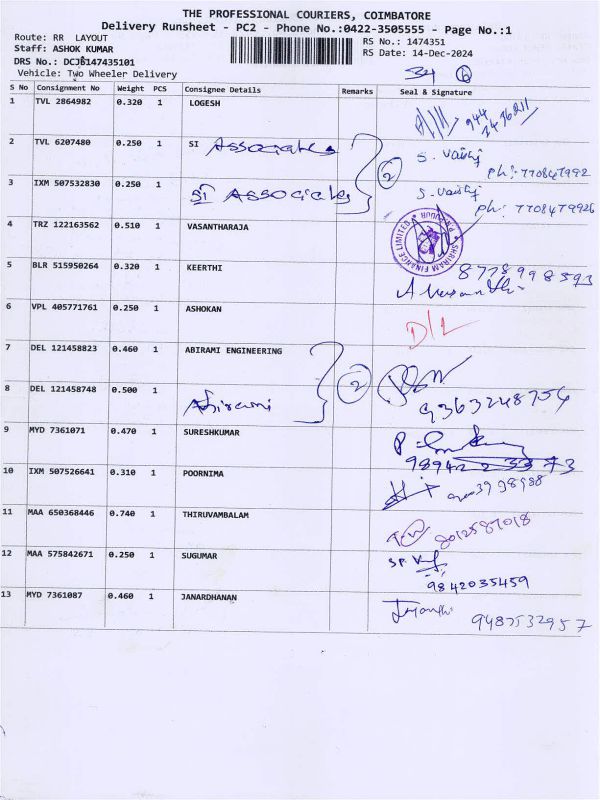 THE PROFESSIONAL COURIERS, COIMBATORE
Delivery Runsheet - PC2 - Phone No.:0422-3505555 - Page No.:1
Route: RR LAYOUT
RS No.: 1474351
Staff: ASHOK KUMAR
RS Date: 14-Dec-2024
DRS No.: DCJB147435101
Vehicle: Two Wheeler Delivery
S No Consignment No Weight PCS Consignee Details Remarks Seal & Signature
1 TVL 2864982 0.320 1 LOGESH
2 TVL 6207480 0.250 1 SI Associates 2 S. Vaishj
Ph: 770847992
3 IXM 507532830 0.250 1 SI Associates S. Vaishj
Ph: 7708479926
4 TRZ 122163562 0.510 1 VASANTHARAJA SHRIRAM FINANCE LIMITED
5 BLR 515950264 0.320 1 KEERTHI 8778998593
6 VPL 405771761 0.250 1 ASHOKAN D/L
7 DEL 121458823 0.460 1 ABIRAMI ENGINEERING 2
8 DEL 121458748 0.500 1 Abirami 9363248756
9 MYD 7361071 0.470 1 SURESHKUMAR
10 IXM 507526641 0.310 1 POORNIMA
11 MAA 650368446 0.740 1 THIRUVAMBALAM 8012587018
12 MAA 575842671 0.250 1 SUGUMAR
9842035459
13 MYD 7361087 0.460 1 JANARDHANAN Jayanthi 9487532957